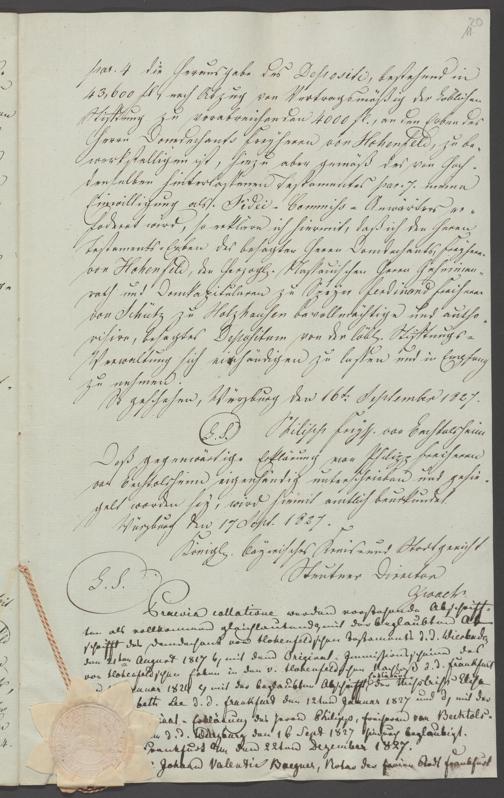 20
par. 4 die Herausgabe des Depositi, bestehend in
43,600 fl, nach Abzug von Vertragsmäßig der löblichen
Stiftung zu verabreichenden 4000 fl., an den Erben des
Herrn Domdechants Freyherrn von Hohenfeld, zu be-
werkstelligen ist, hiezu aber gemäß des von Hoch-
demselben hinterlassenen Testamentes par. 7. meine
Einwilligung als Fidei-Commiß-Anwärters er-
fodert wird, so erkläre ich hiermit, daß ich den Herrn
Testaments-Erben des besagten Herrn Domdechants, Freiherrn
von Hohenfeld, den Herzogl. Nassauischen Herrn Geheimen-
rath und Domkapitularen zu Speyer Ferdinand Freiherrn
von Schütz zu Holzhausen bevollmächtige und autho-
risire, besagtes Depositum von der löbl. Stiftungs-
Verwaltung sich einhändigen zu lassen und in Empfang
zu nehmen.
So geschehen, Würzburg den 16t. September 1827.
(L.S.) Philipp Freyh. von Bechtolsheim
Daß gegenwärtige Erklärung von Philipp Freiherrn
von Bechtolsheim eigenhändig unterschrieben und gesie-
gelt worden sey, wird hiemit amtlich beurkundet
Würzburg den 17 Sept. 1827.
Königl. bayerisches Kreis und Stadtgericht
L.S. Director
Praevia collatione werden vorstehende Abschrift-
ten als vollkommen gleichlautend mit der beglaubten Ab-
schrift des Domdechant von Hohenfeldschen Testaments d.d. Wiesbaden
den 21ten August 1817 mit dem Original- Immissionsschein des
von Hohenfeldschen Erben in den v. Hohenfeldschen d.d. Frankfurt
Januar 1824 mit der beglaubten Abschrift des
beth d.d. Frankfurt den 12ten Januar 1827 und mit der
Erklärung des Herrn Philipp, Freiherrn von Bechtols-
d.d. Würzburg den 16 Sept 1827 hiedurch beglaubigt.
Frankfurt am den 22ten Dezember 1827.
Johann Valentin Notar der freien Stadt Frankfurt